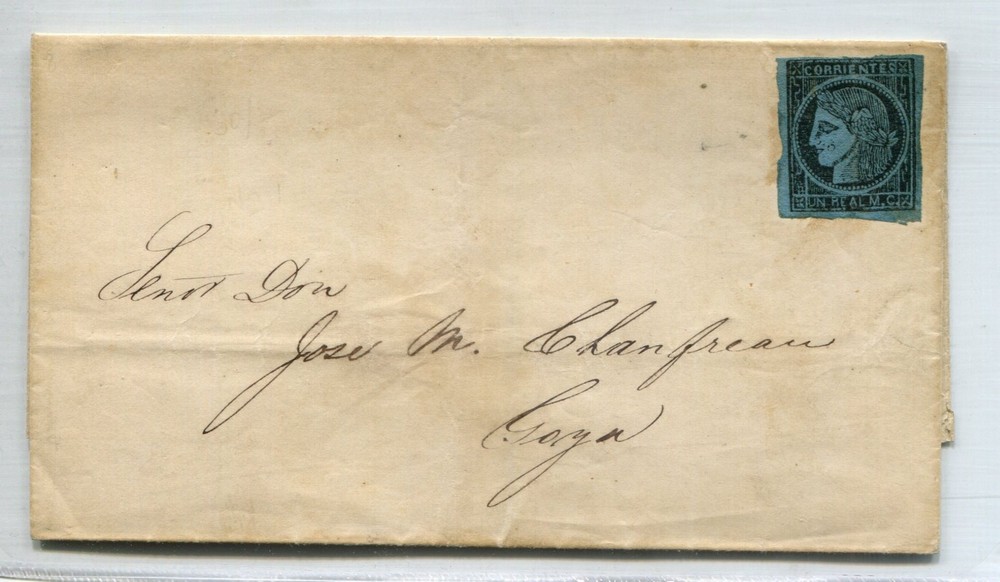 CORRIENTES
UN REAL M.C.
Señor Don
Jose M. Chanfreau
Goya